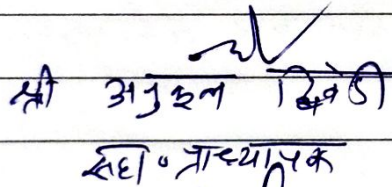 श्री अनुकूल द्विवेदी
सहा॰ प्राध्यापक